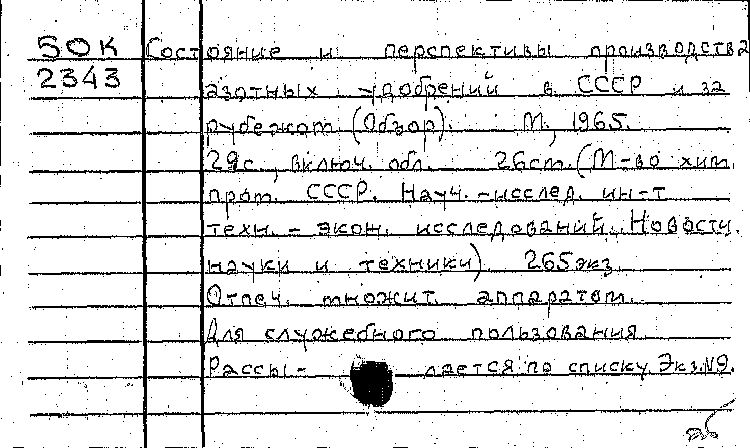 50К Состояние и перспективы производства
2343 азотных удобрений в СССР и за
рубежом. (Обзор). М., 1965.
29с., включ. обл. 26см. (М-во хим.
пром. СССР. Науч.-исслед. ин-т
техн.-экон. исследований. Новости
науки и техники). 265экз.
Отпеч. множит. аппаратом.
Для служебного пользования.
Рассы- лается по списку. Экз.№9.